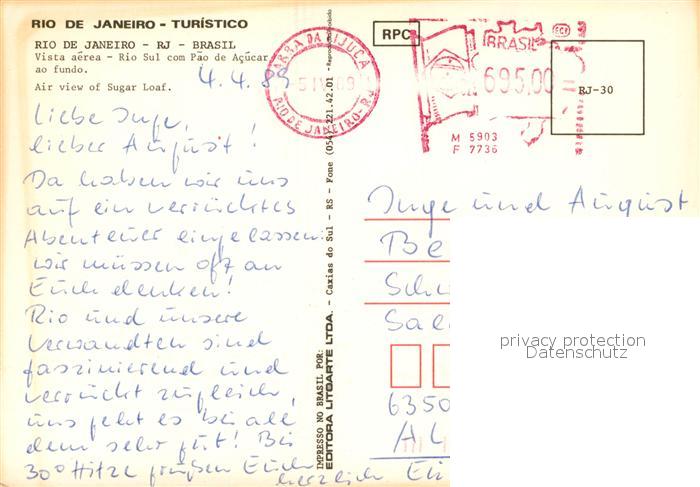 RIO DE JANEIRO - TURÍSTICO
RIO DE JANEIRO - RJ - BRASIL
Vista aérea - Rio Sul com Pão de Açúcar
ao fundo.
Air view of Sugar Loaf.
4.4.89
Liebe Inge,
lieber August!
Da haben wir uns
auf ein verrücktes
Abenteuer eingelassen:
wir müssen oft an
Euch denken!
Rio und unsere
Verwandten sind
faszinierend und
verrückt zugleich,
uns geht es bei all
dem sehr gut! Bei
30° Hitze grüßen Euch
herzlich
IMPRESSO NO BRASIL POR:
EDITORA LITOARTE LTDA. - Caxias do Sul - RS - Fone (054) 221.42.01
BARRA DA TIJUCA
RIO DE JANEIRO - RJ
RPC
BRASIL
ECT
695,00
M 5903
F 7736
RJ-30
Inge und August
Be
Sch
Sal
6350
AL
privacy protection
Datenschutz